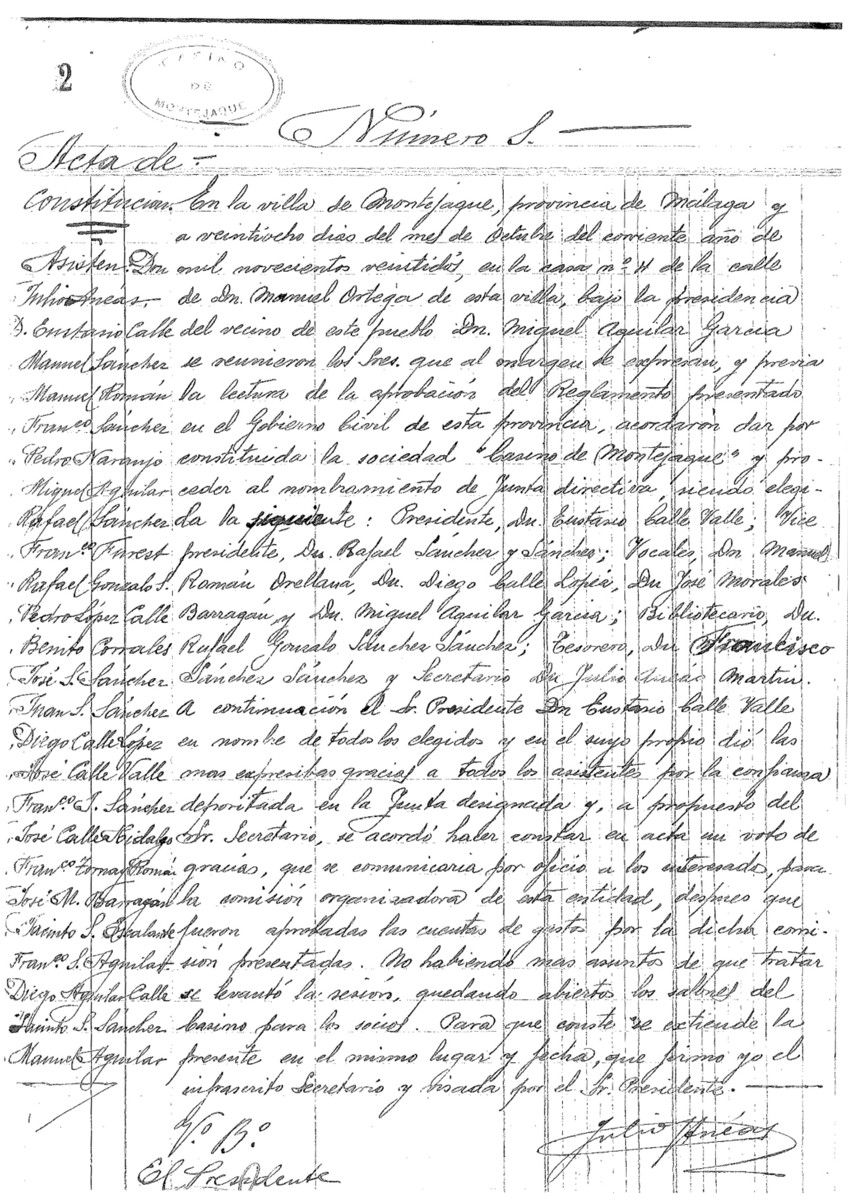 2
CASINO
DE
MONTEJAQUE
Número 1.
Acta de
Constitucion. En la villa de Montejaque, provincia de Málaga y
a veintiocho dias del mes de Octubre del corriente año de
Asisten: Don mil novecientos veintidós, en la casa nº 11 de la calle
Julio Aneás. de Dn. Manuel Ortega de esta villa, bajo la presidencia
D. Eustasio Calle del vecino de este pueblo Dn. Miguel Aguilar Garcia
Manuel Sánchez se reunieron los Sres. que al margen se expresan, y previa
Manuel Román la lectura de la aprobación del Reglamento presentado
Franco Sánchez en el Gobierno Civil de esta provincia, acordarón dar por
Pedro Naranjo constituida la sociedad "Casino de Montejaque" y pro-
Miguel Aguilar ceder al nombramiento de Junta directiva, siendo elegi-
Rafael Sánchez da la siguiente: Presidente, Dn. Eustasio Calle Valle; Vice
Franco Furest presidente, Dn. Rafael Sánchez y Sánchez; Vocales Dn. Manuel
Rafael Gonzalo S. Román Orellana, Dn. Diego Calle López, Dn José Morales
Pedro López Calle Barragan y Dn. Miguel Aguilar Garcia; Bibliotecario, Dn.
Benito Corrales Rafael Gonzalo Sánchez Sánchez; Tesorero, Dn Francisco
José S. Sánchez Sánchez Sánchez y Secretario Dn Julio Aneás Martin.
Juan S. Sánchez A continuación el Sr. Presidente Dn Eustasio Calle Valle
Diego Calle López en nombre de todos los elegidos y en el suyo propio dió las
José Calle Valle mas expresibas gracias a todos los asistentes por la confianza
Franco S. Sánchez depositada en la Junta designada y, a propuesto del
José Calle Hidalgo Sr. Secretario, se acordó hacer constar en acta un voto de
Franco Tornay Román gracias, que se comunicaria por oficio a los interesados, para
José M. Barragán la comisión organizadora de esta entidad, despues que
Jacinto S. Escalante fueron aprobadas las cuentas de gastos por la dicha comi-
Franco S. Aguilar sión presentadas. No habiendo mas asuntos de que tratar
Diego Aguilar Calle se levantó la sesión, quedando abiertos los salones del
Jacinto S. Sánchez Casino para los socios. Para que conste se extiende la
Manuel Aguilar presente en el mismo lugar y fecha, que firmo yo el
infrascrito Secretario y visada por el Sr. Presidente.
Vº Bº
Julio Aneás
El Presidente